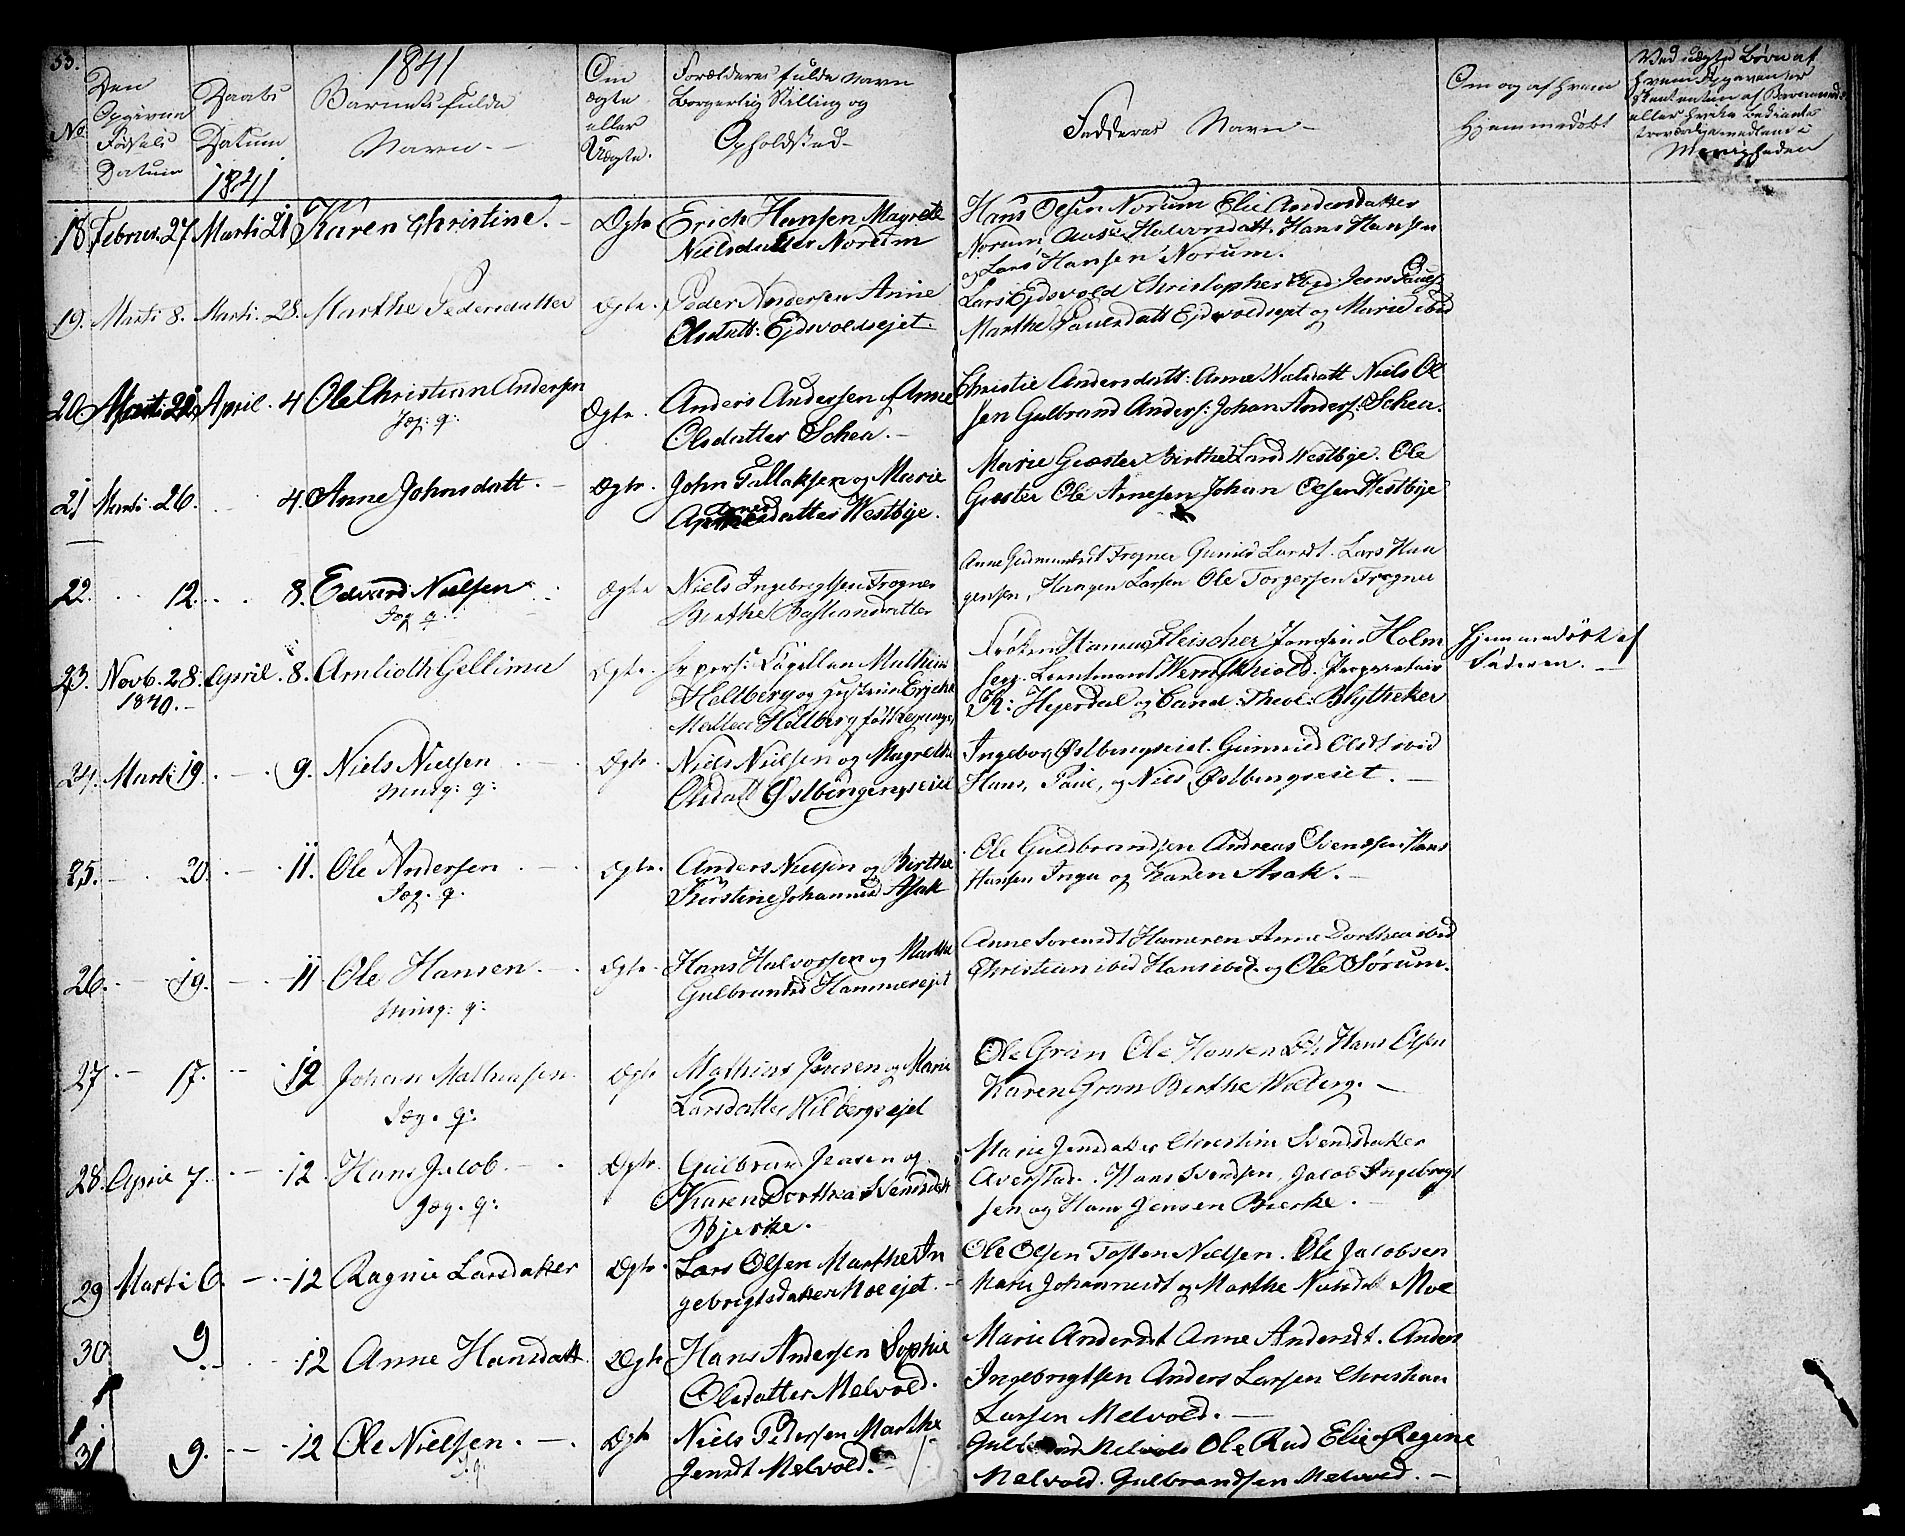 53.
1841
No
Den Opgivne Fødsels Datum
Daabs Datum 1841
Barnets fulde Navn. -
Om ægte eller Uægte.
Forældrenes fulde Navn Borgerlig Stilling og Opholdsted -
Faddernes Navn -
Om og af hvem hjemmedøbt
Ved uægte Børn af
Menigheden
18. Februar. 27 Marti 21 Karen Christine. - Ægte Erich Hansen Magrete
Nielsdatter Norum
Hans Olsen Norum Elie Andersdatter
Norum, Aase Halvorsdatt. Hans Hansen
og Lars Hansen Norum.
19. Marti 8. Marti. 28. Marthe Pedersdatter Ægte. Peder Andersen Anne
Olsdatt: Ejdsvoldsejet.
Lars Ejdsvold Christopher ibid: Jens
Marthe Paulsdatt Ejdsvoldsejet og Marie ibid
20 Marti 22 April. 4 Ole Christian Andersen Ægte. Anders Andersen og Anne
Jag: q:
Olsdatter Schea. -
Christie Andersdatt: Anne Nielsdatt Niels Ol
sen Gulbrand Anders: Johan Anders: Schea.
21 Marti 26. 4. Anne Johnsdatt. - Ægte. John Tallaksen og Marie
Westbye.
Marie Giester Birthe Lars Westbye. Ole
Giester Ole Arnesen Johan Olsen Westbye
22. 12. 8. Edvard Nielsen Ægte Niels Ingebrigtsen Frogner
Jag q:
Berthe Bastiansdatter
Anne Frogner Gunild Larsdt. Lars Haa
gensen, Haagen Larsen Ole Torgersen Frogner
23. Novb. 28. April. 8. Amlioth Gellina Ægte.
1840. -
Hellberg og
Hellberg
Frøken Hanna Fleischer Holm
Proprietair
K: Hejerdal og Cand: Theol: Blytheker
Hjemmedøbt af
Faderen. -
24. Marti 19. 9. Niels Nielsen Ægte. Niels Nielsen og Magrethe
q:
Olsdatt
Ingebor Østbyngseiet. Gunnild Olsdt ibid
Hans, Paul, og Niels Østbyngseiet. -
25. 20. 11. Ole Andersen Ægte. Anders Nielsen og Birthe
Jag. q.
Kirstine Asak
Ole Guldbrandsen Andreas Svendsen Hans
Hansen Inga og Karen Asak. -
26. 19. 11 Ole Hansen. Ægte. Hans Halvorsen og Marthe
q:
Gulbrandsd Hammersejet
Anne Sorensdt Hameren Anne Dorthea ibid
Christian ibid Hans ibid. og Ole Sørum.
27 17. 12 Johan Mathiesen Ægte Mathias Jensen og Marie
Jag. q:
Larsdatter
Ole Gran Ole Hansen Hans Olsen
Karen Gran Berthe -
28. April 7. 12 Hans Jacob. Ægte. Gulbrand Jensen og
Jag. q:
Karen Dorthea Svendsdatt
Bjerke.
Marie Jensdatter Christine Svendsdatter
Averstad. Hans Svendsen, Jacob Ingebrigt
sen og Hans Jensen Bierke. -
29 Marti 6. 12 Ragnie Larsdatter Ægte. Lars Olsen Marthe In
gebrigtsdatter Moe ejet.
Ole Olsen Tosten Nielsen. Ole Jacobsen
Marie Johannesdt og Marthe Nielsdatt Moe
30 9 12 Anne Hansdatt. Ægte Hans Andersen Sophie
Olsdatter Melvold.
Marie Andersdt Anne Andersdt. Anders
Ingebrigtsen Anders Larsen Christian
Larsen Melvold. -
31 9. 12 Ole Nielsen. - Ægte Niels Pedersen Marthe
J. q:
Jensdt Melvold. -
Melvold Ole Rud Elie og Regine
Melvold. Gulbrandsen Melvold. -